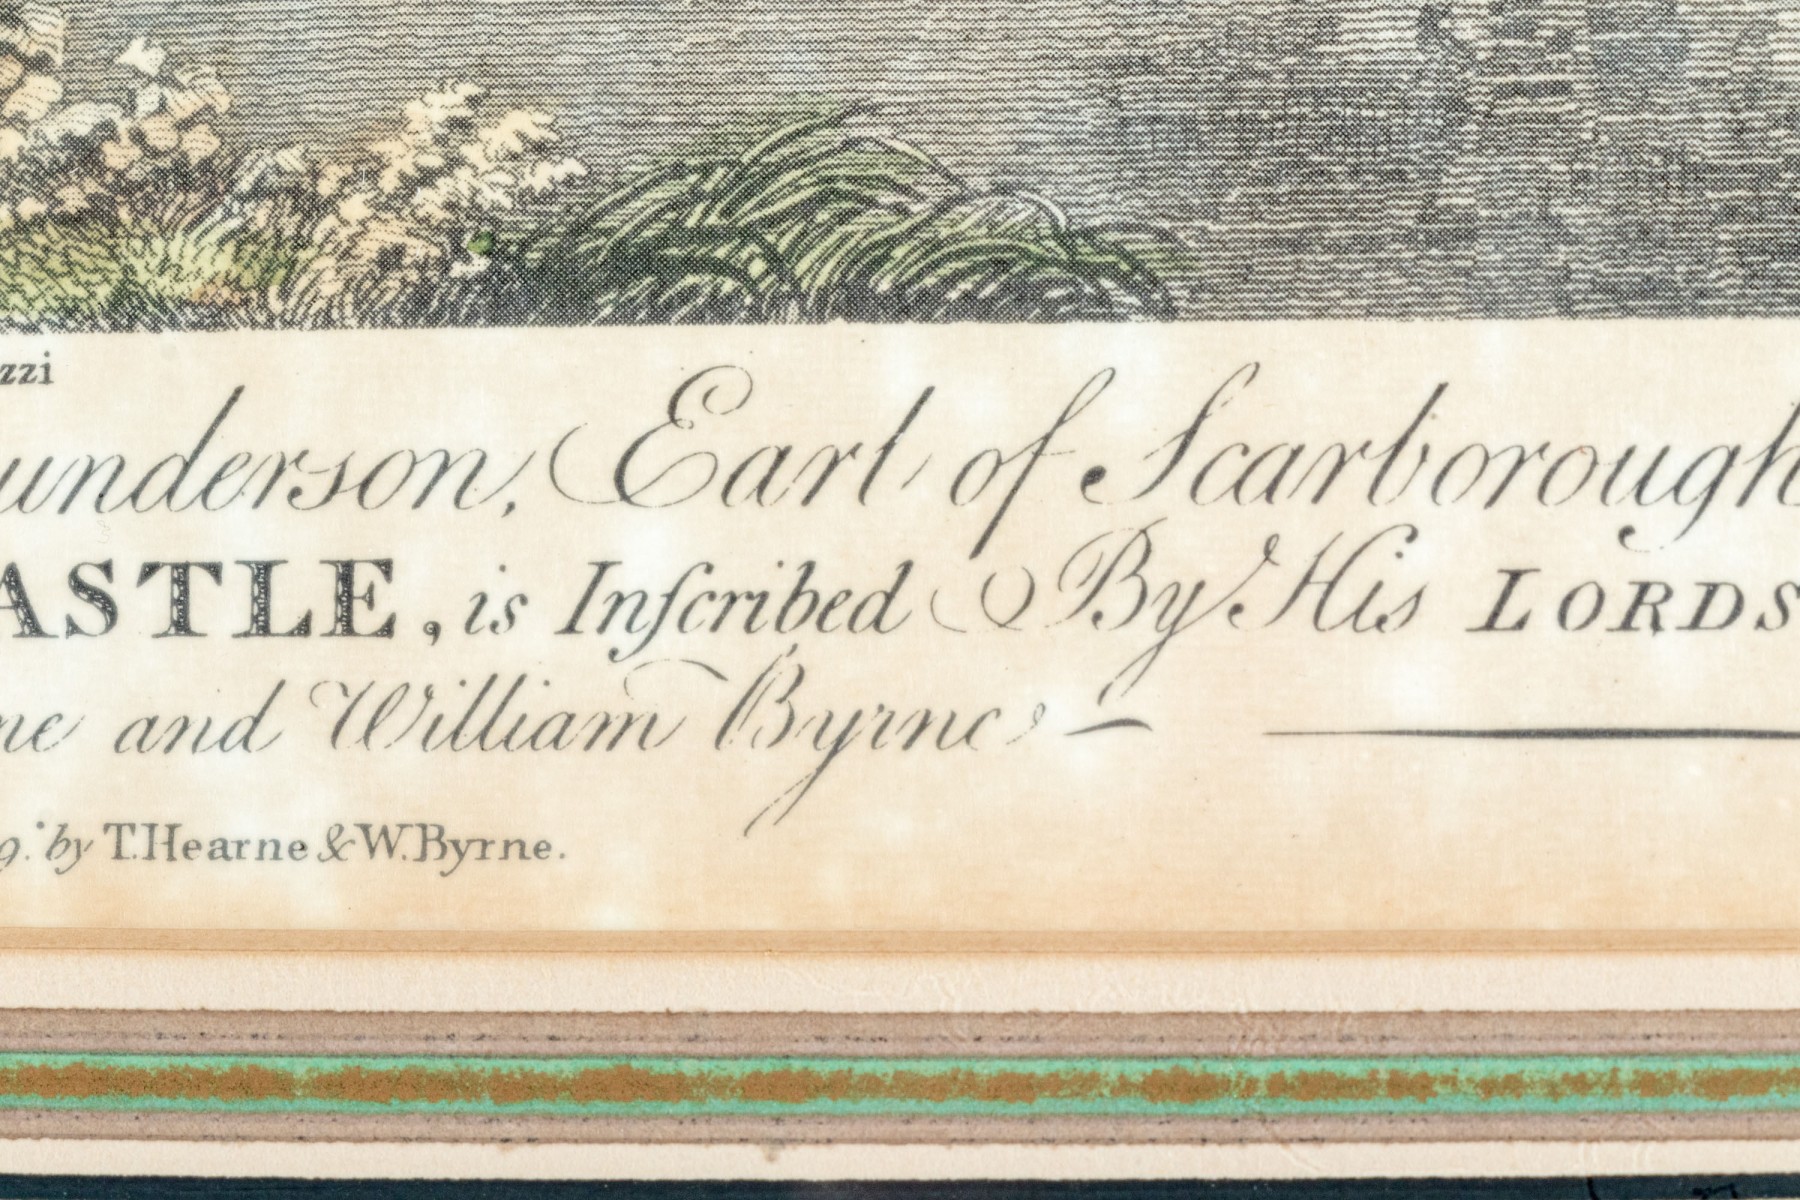 zzi
underson, Earl of Scarborough
ASTLE, is Inſcribed By His LORDS
ne and William Byrne
9. by T. Hearne & W. Byrne.